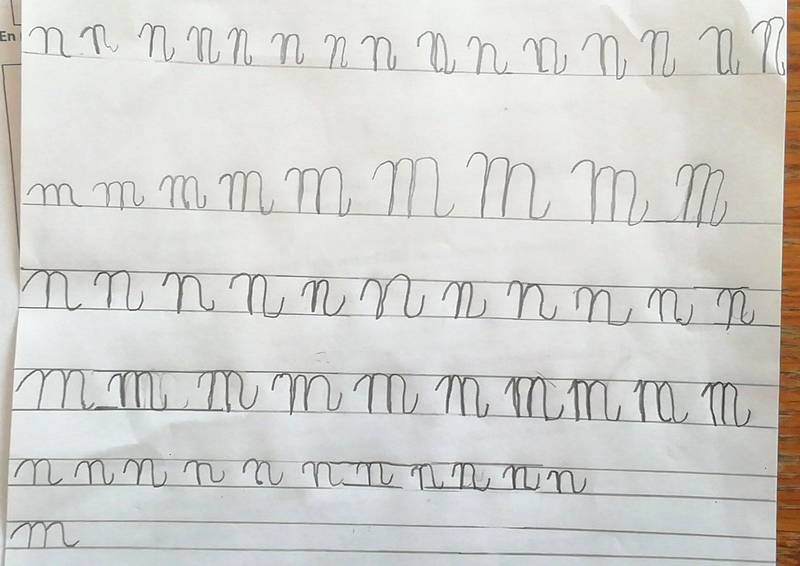 En
n n n n n n n n n n n n n n n
m m m m m m m m m
n n n n n n n n n n n
m m m m m m m m m m
n n n n n n n n n n n
m